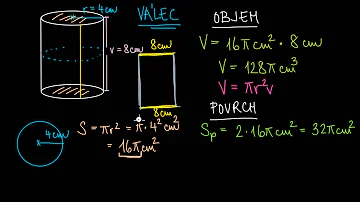 r = 4cm
VÁLEC
v = 8cm
8cm
8cm
4cm
S = πr² = π·4² cm²
= 16π cm²
OBJEM
V = 16π cm² · 8 cm
V = 128π cm³
V = πr²v
POVRCH
Sp = 2·16π cm² = 32π cm²